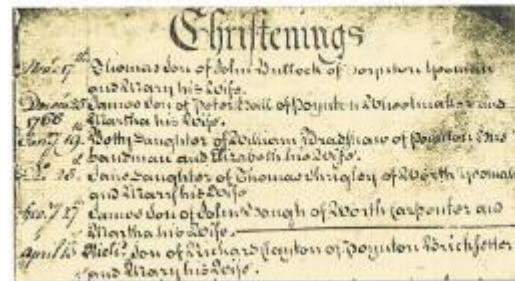 Christenings
Nov. 17th Thomas Son of John Bullock of Poynton Yeoman
and Mary his Wife.
James Son of Peter Hall of Poynton and
1766 Martha his Wife.
19 Betty Daughter of William Bradshaw of Poynton Hus
bandman and Elizabeth his Wife.
Do 25 Jane Daughter of Thomas Shrigley of Worth Yeoman
and Mary his Wife
27 James Son of John of Worth Carpenter and
Martha his Wife.
April Son of Richard Clayton of Poynton Bricksetter
and Mary his Wife.